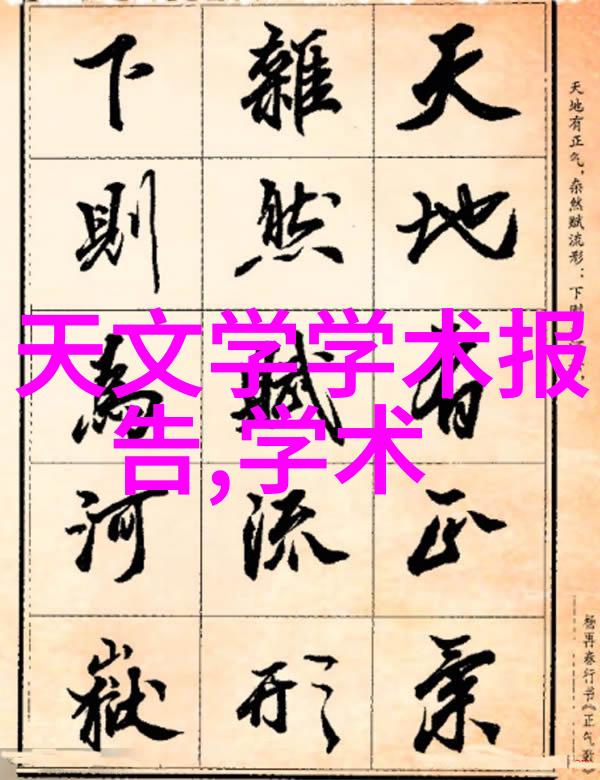 天地有正氣
雜然賦流形
下則為河嶽
天地有正气，杂然赋流形；下则
杨再春行书《正气歌》
天文学学术报
告,学术